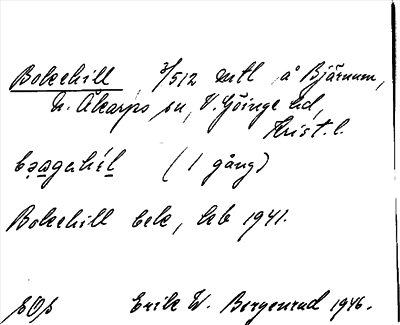 Bokehill 3/512 mtl å Bjärnum,
N. Åkarps sn, V. Göinge hd,
Krist. l.
(1 gång)
Bokehill bek, kb 1941.
Erik W. Bergenrud 1946.